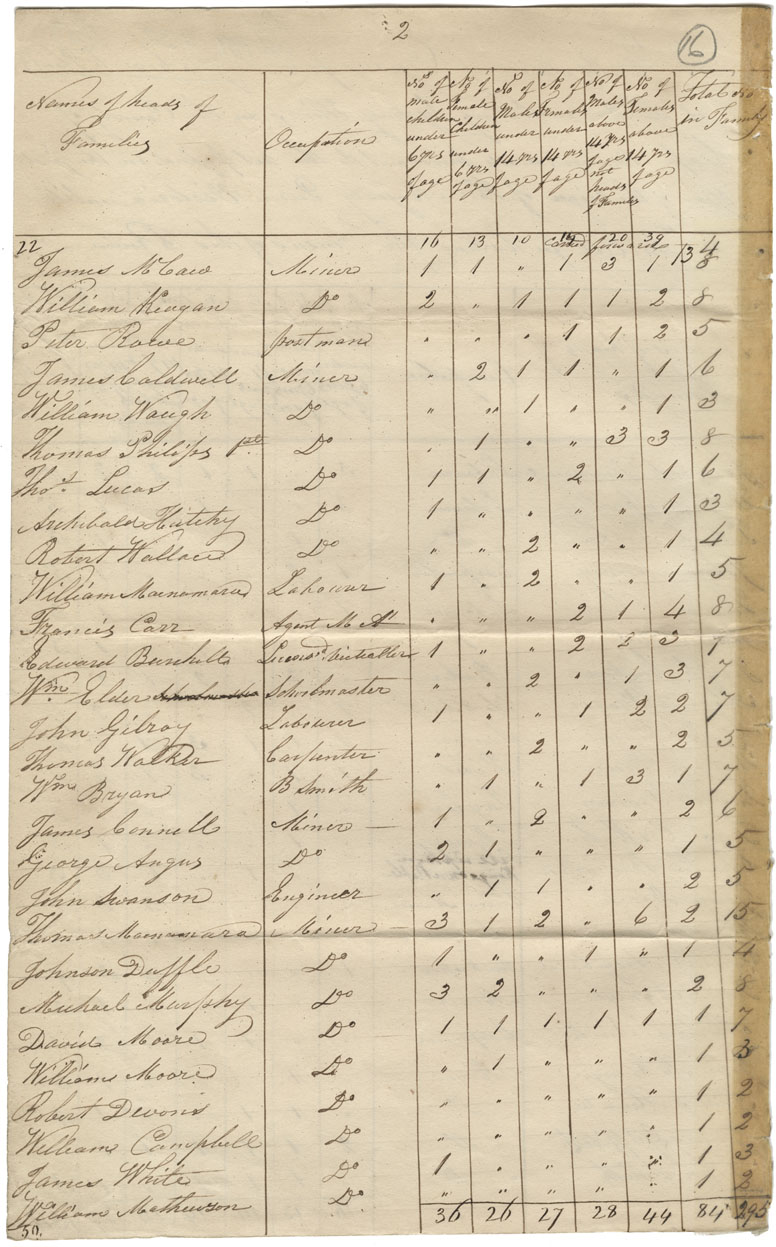 2
16
Names of heads of Families Occupation Nos of male children under 6 yrs of age No of Female Children under 6 yrs of age No of Males under 14 yrs of age No of Females under 14 yrs of age No of Males above 14 yrs of age not heads of Families No of Females above 14 yrs of age Total No in Family
22 16 13 10 carried forward 20 39 134
James McCaw Miner 1 1 " 1 3 1 8
William Keogan Do 2 " 1 1 1 2 8
Peter Rowe postman " " " 1 1 2 5
James Caldwell Miner " 2 1 1 " 1 6
William Waugh Do " " 1 " " 1 3
Thomas Philips 1st Do " 1 " " 3 3 8
Thos. Lucas Do 1 1 " 2 " 1 6
Archibald Hutchy Do 1 " " " " 1 3
Robert Wallace Do " " 2 " " 1 4
William Macnamara Labourer 1 " 2 " " 1 5
Francis Carr Agent M A " " " 2 1 4 8
Edward Victualler 1 " " 2 3
Wm Elder Schoolmaster " " 2 " 1 3 7
John Gilroy Labourer 1 " " 1 2 2 7
Thomas Walker Carpenter " " 2 " " 2 5
Wm Bryan B Smith " 1 " 1 3 1 7
James Connell Miner — 1 " 2 " " 2 6
George Angus Do 2 1 " " " 1 5
John Swanson Engineer " 1 1 " " 2 5
Thomas Macnamara Miner — 3 1 2 " 6 2 15
Johnson Duffle Do 1 " " 1 " 1 4
Michael Murphy Do 3 2 " " " 2 8
David Moore Do 1 1 1 1 1 1 7
William Moore Do " 1 " " " 1 3
Robert Devons Do " " " " " 1 2
William Campbell Do " " " " " 1 2
James White Do 1 " " " " 1 3
William Mathewson Do " " " " " 1 2
50. 36 26 27 28 44 84 295